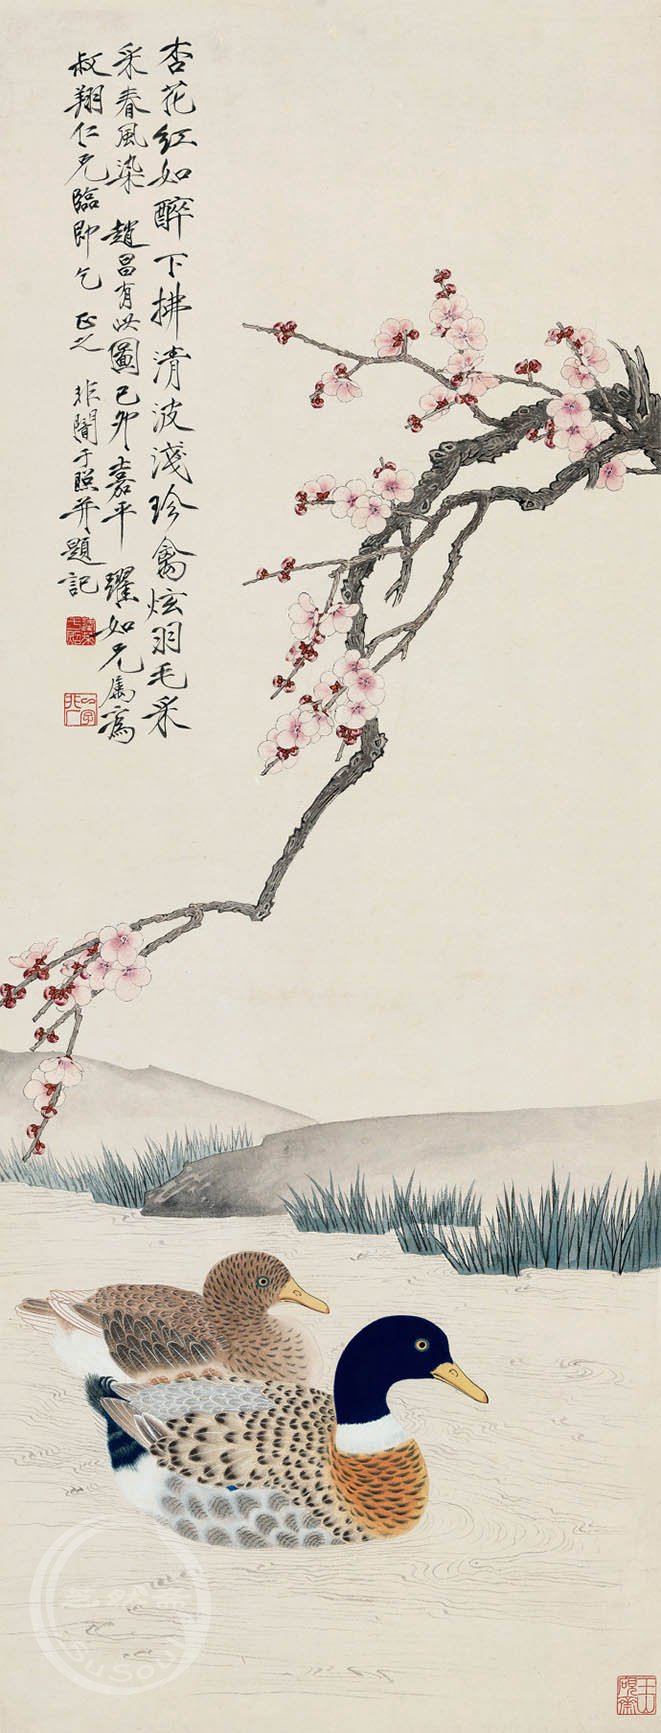 杏花红如醉下拂清波淺珍禽炫羽毛采
采春風染 趙昌有此圖己卯嘉平 躍如兄属寫
叔翔仁兄臨即乞 正之 非闇于照并題記